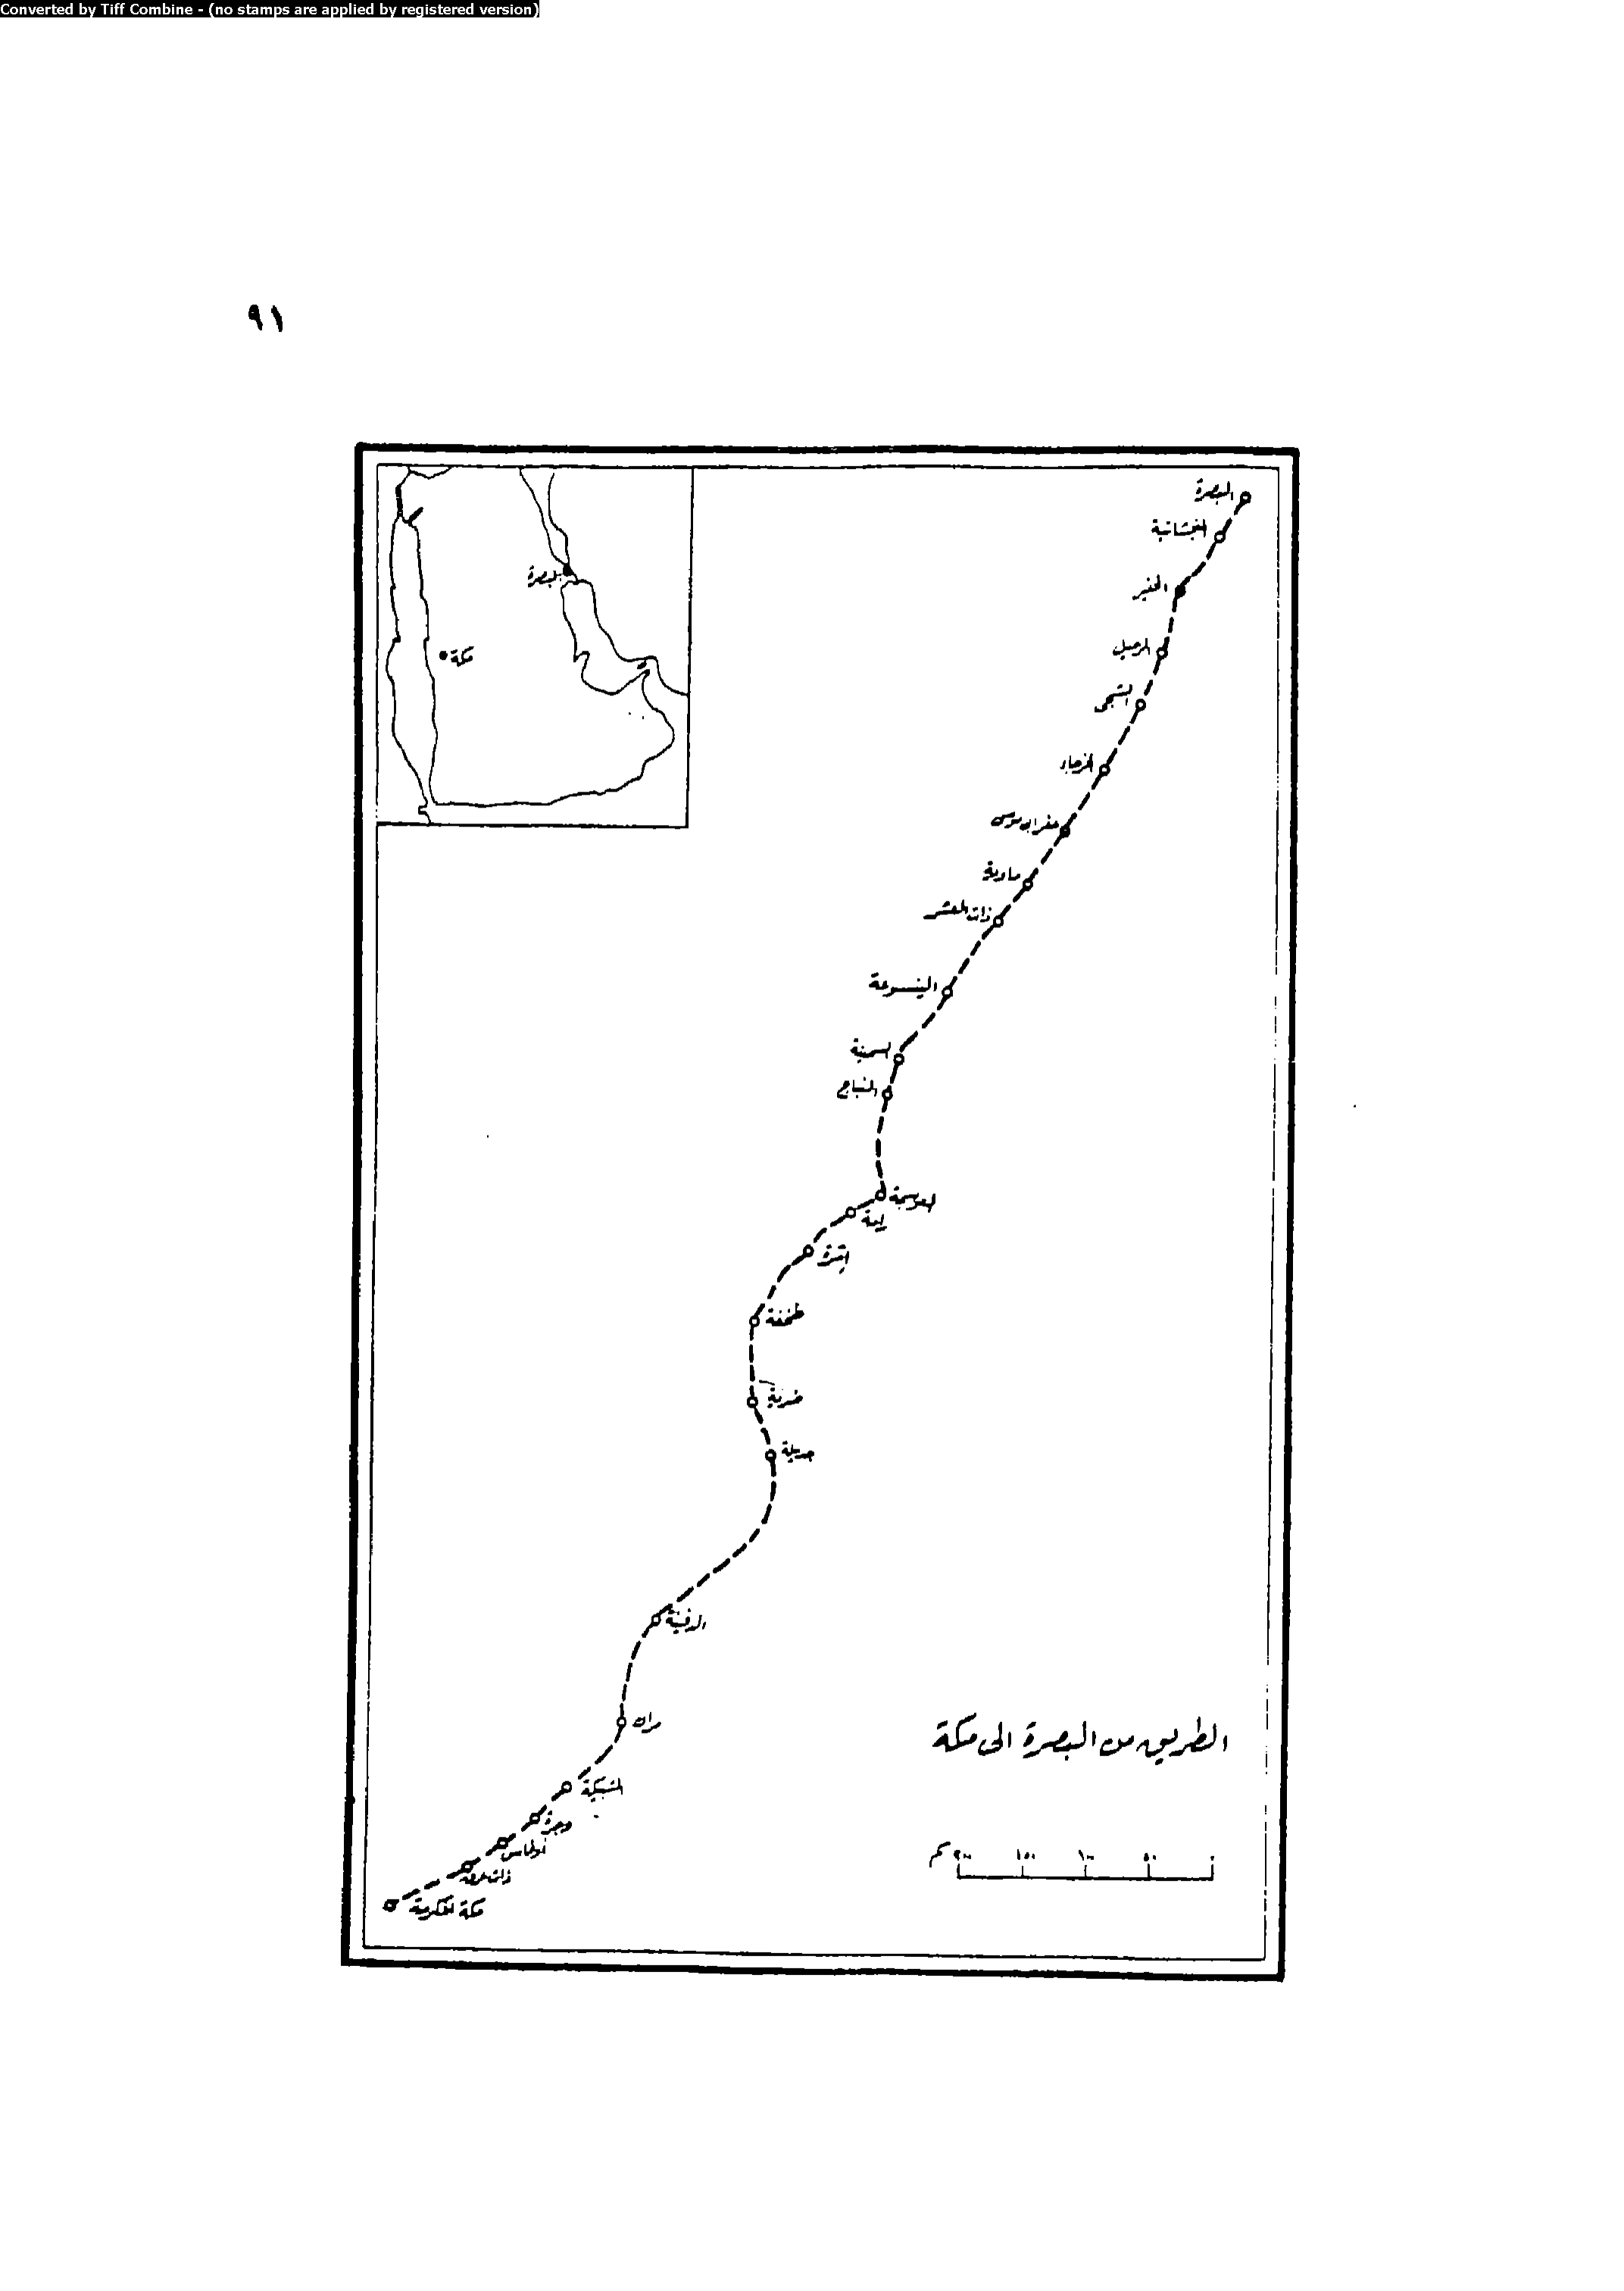 Converted by Tiff Combine - (no stamps are applied by registered version)
٩١
البصرة
المنجشانية
الحفير
الرحيل
الشجي
الخرجاء
حفر ابي موسى
ماوية
ذات العشر
الينسوعة
السمينة
النباج
العوسجة
رامة
إمرة
طخفة
ضرية
جديلة
الدفينة
مران
الشبيكة
وجرة
أوطاس
ذات عرق
مكة المكرمة
البصرة
مكة
الطريق من البصرة الى مكة
٢٠٠ ١٥٠ ١٠٠ ٥٠ ٠ كم